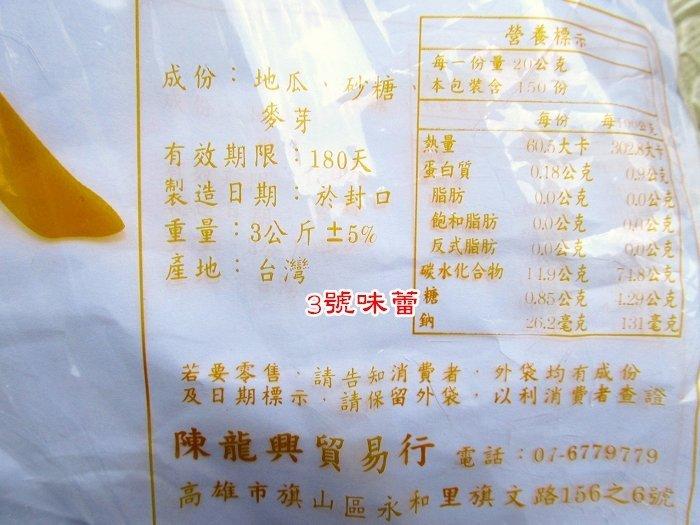 成份：地瓜、砂糖、
麥芽
有效期限：180天
製造日期：於封口
重量：3公斤±5%
產地：台灣
營養標示
每一份量 20公克
本包裝含 150份
每份 每100公克
熱量 60.5大卡 302.8大卡
蛋白質 0.18公克 0.9公克
脂肪 0.0公克 0.0公克
飽和脂肪 0.0公克 0.0公克
反式脂肪 0.0公克 0.0公克
碳水化合物 14.9公克 74.8公克
糖 0.85公克 4.29公克
鈉 26.2毫克 131毫克
3號味蕾
若要零售，請告知消費者，外袋均有成份
及日期標示，請保留外袋，以利消費者查證
陳龍興貿易行 電話：07-6779779
高雄市旗山區永和里旗文路156之6號